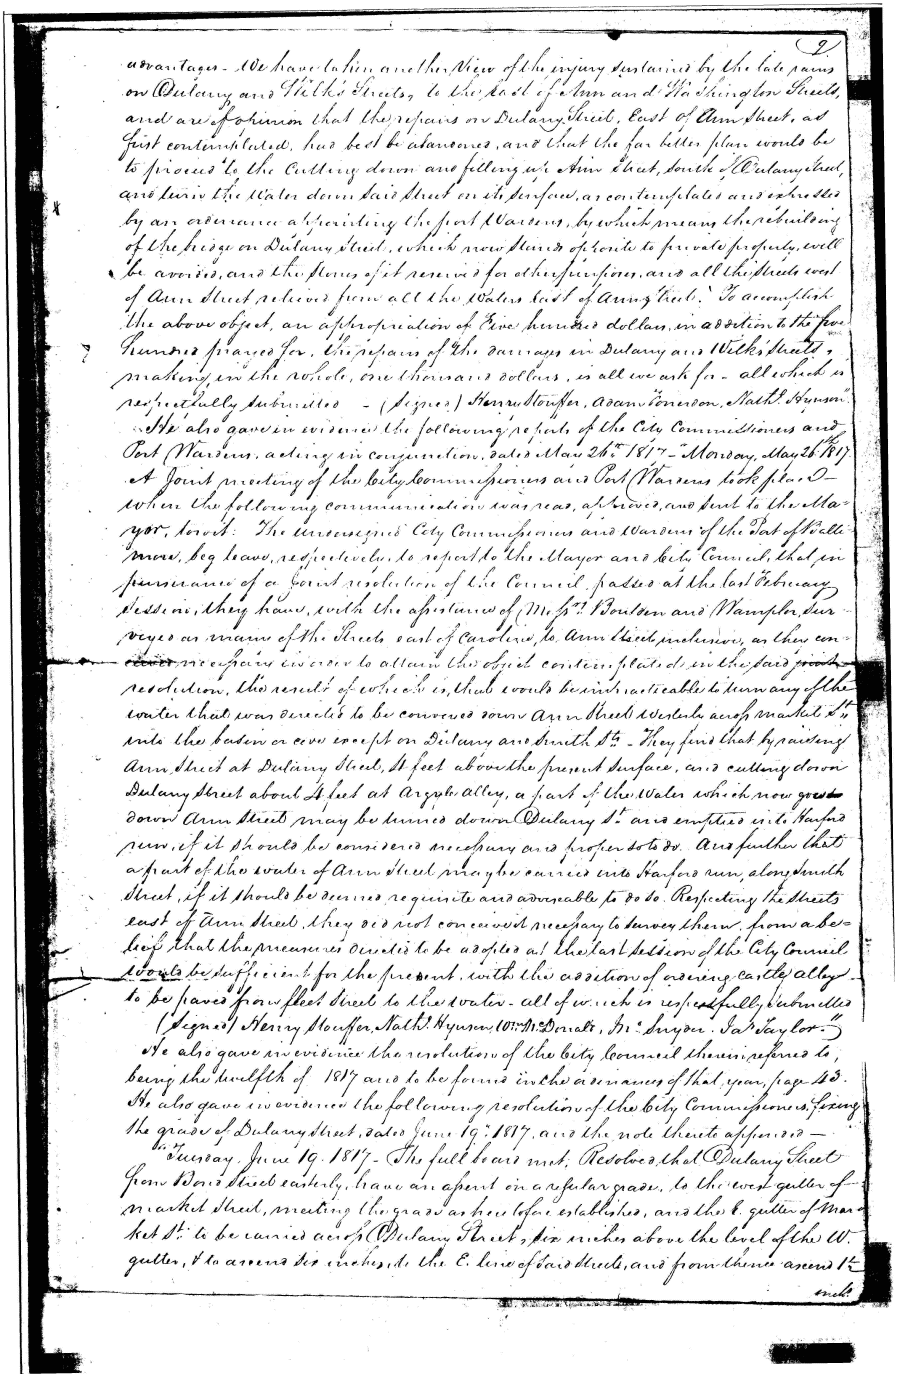 9
advantages - We have taken another view of the injury sustained by the late rains
on Dulany and Wilks Streets, to the East of Ann and Washington Streets,
and are of opinion that the repairs on Dulany Street, East of Ann Street, as
first contemplated, had best be abandoned, and that the far better plan would be
to proceed to the cutting down and filling up Ann Street, South of Dulany Street,
and turn the water down said Street on its surface, as contemplated and expressed
by an ordinance appointing the port Wardens, by which means the rebuilding
of the bridge on Dulany Street, which now stands opposite to private property, will
be avoided, and the stones of it reserved for other purposes, and all the Streets west
of Ann Street relieved from all the waters East of Ann Street. To accomplish
the above object, an appropriation of Five hundred dollars, in addition to the five
hundred prayed for, the repairs of the damages in Dulany and Wilks Streets,
making, in the whole, one thousand dollars, is all we ask for - all which is
respectfully submitted - (Signed) Henry Stouffer, Adam Fonerdon, Nathl. Hynson"
He also gave in evidence the following reports of the City Commissioners and
Port Wardens, acting in conjunction, dated May 26th 1817 - "Monday, May 26th 1817
A Joint meeting of the City Commissioners and Port Wardens took place -
when the following communication was read, approved, and sent to the Ma-
yor, towit: The undersigned City Commissioners and Wardens of the Port of Balti
more, beg leave, respectively, to report to the Mayor and City Council, that in
pursuance of a Joint resolution of the Council, passed at the last February
Session, they have, with the assistance of Messrs. Bouldin and Wampler, Sur-
veyed as many of the Streets east of Caroline, to Ann Street, inclusive, as they con-
ceived necessary in order to attain the object contemplated in the said joint
resolution, the result of which is, that would be impracticable to turn any of the
water that was directed to be conveyed down Ann Street Westerly across market St.
into the basin or cove except on Dulany and Smith Sts - They find that by raising
Ann Street at Dulany Street, 4 feet above the present surface, and cutting down
Dulany Street about 4 feet at Argyle alley, a part of the water which now goes
down Ann Street may be turned down Dulany St. and emptied into Harford
run, if it should be considered necessary and proper so to do. And further that
a part of the water of Ann Street may be carried into Harford run, along Smith
Street, if it should be deemed requisite and adviseable to do so. Respecting the Streets
east of Ann Street, they did not conceive it necessary to survey them, from a be-
lief that the measures directed to be adopted at the last session of the City Council
would be sufficient for the present, with the addition of ordering castle alley
to be paved from fleet Street to the water - all of which is respectfully submitted
(Signed) Henry Stouffer, Nathl. Hynson, Wm. McDonald, Jno. Snyder. Jas. Taylor."
He also gave in evidence the resolution of the City Council therein referred to,
being the twelfth of 1817 and to be found in the ordinances of that year, page 43.
He also gave in evidence the following resolution of the City Commissioners, fixing
the grade of Dulany Street, dated June 19th 1817, and the note thereto appended -
"Tuesday, June 19. 1817 - The full board met; Resolved, that Dulany Street
from Bond Street easterly, have an ascent on a regular grade, to the west gutter of
market Street, meeting the grade as heretofore established, and the E. gutter of Mar
ket St. to be carried across Dulany Street, six inches above the level of the W.
gutter, & to ascend six inches, to the E. line of said Streets, and from thence ascend 1 1/2
inch.